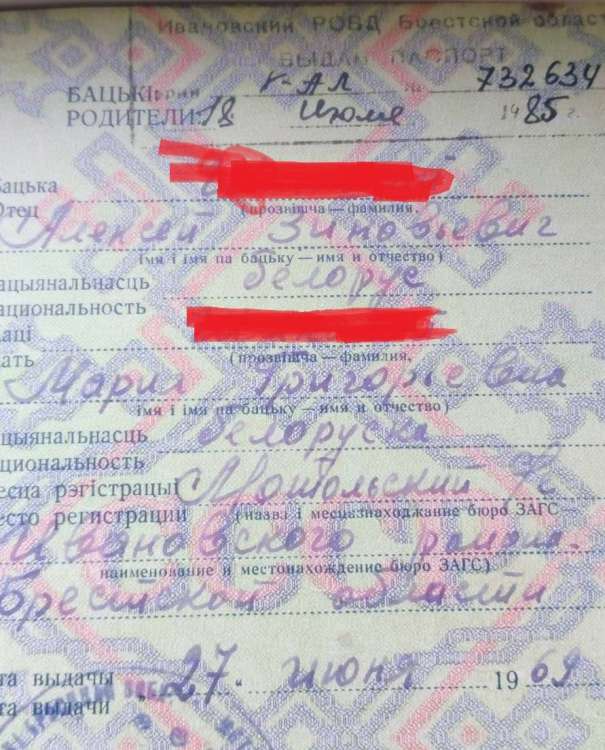 Ивановский РОВД Брестской област
ВЫДАН ПАСПОРТ
БАЦЬКІ: серия I-АЛ № 732634
РОДИТЕЛИ: 18 Июля 1985 г.
Бацька
Отец
(прозвішча — фамилия,
Алексей Зиновьевич
імя і імя па бацьку — имя и отчество)
ацыянальнасць белорус
ациональность
аці
ать
(прозвішча — фамилия,
Мария Григорьевна
імя і імя па бацьку — имя и отчество)
ацыянальнасць белоруска
циональность
есца рэгістрацыі Мотольский с/с
есто регистрации (назва і месцазнаходжанне бюро ЗАГС —
Ивановского района
наименование и местонахождение бюро ЗАГС)
Брестской области
та выдачы 27 июня 1969
та выдачи